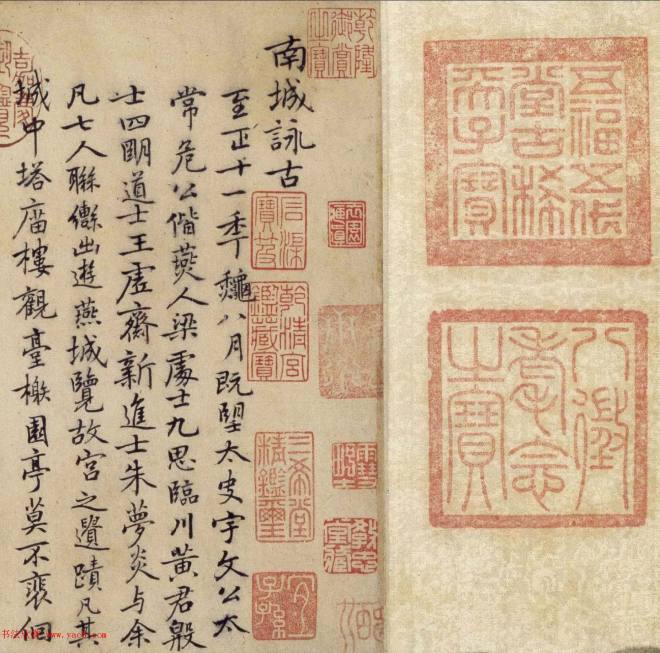 五福五代
堂古稀
天子寶
八徵
耄念
之寶
乾隆
御賞
之寶
南城詠古
至正十一年龝八月既望太史宇文公太
常危公偕燕人梁處士九思臨川黃君殷
士四明道士王虛齋新進士朱夢炎与余
凡七人聯轡出遊燕城覽故宮之遺蹟凡其
城中塔庿樓觀臺榭園亭莫不裵佪
石渠
寶笈
乾清宮
鑑藏寶
三希堂
精鑑璽
宜
子孫
www.yac8.com